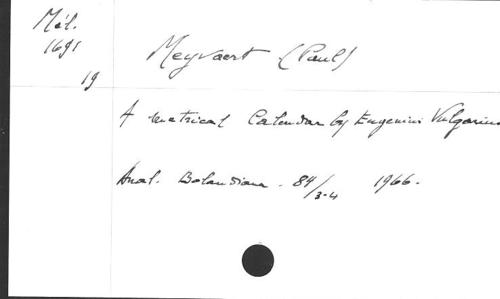 Mél.
1691
19
Meyvaert (Paul)
A metrical Calendar by Eugenius Vulgarius
Anal. Bolandiana. 84/3-4 1966.